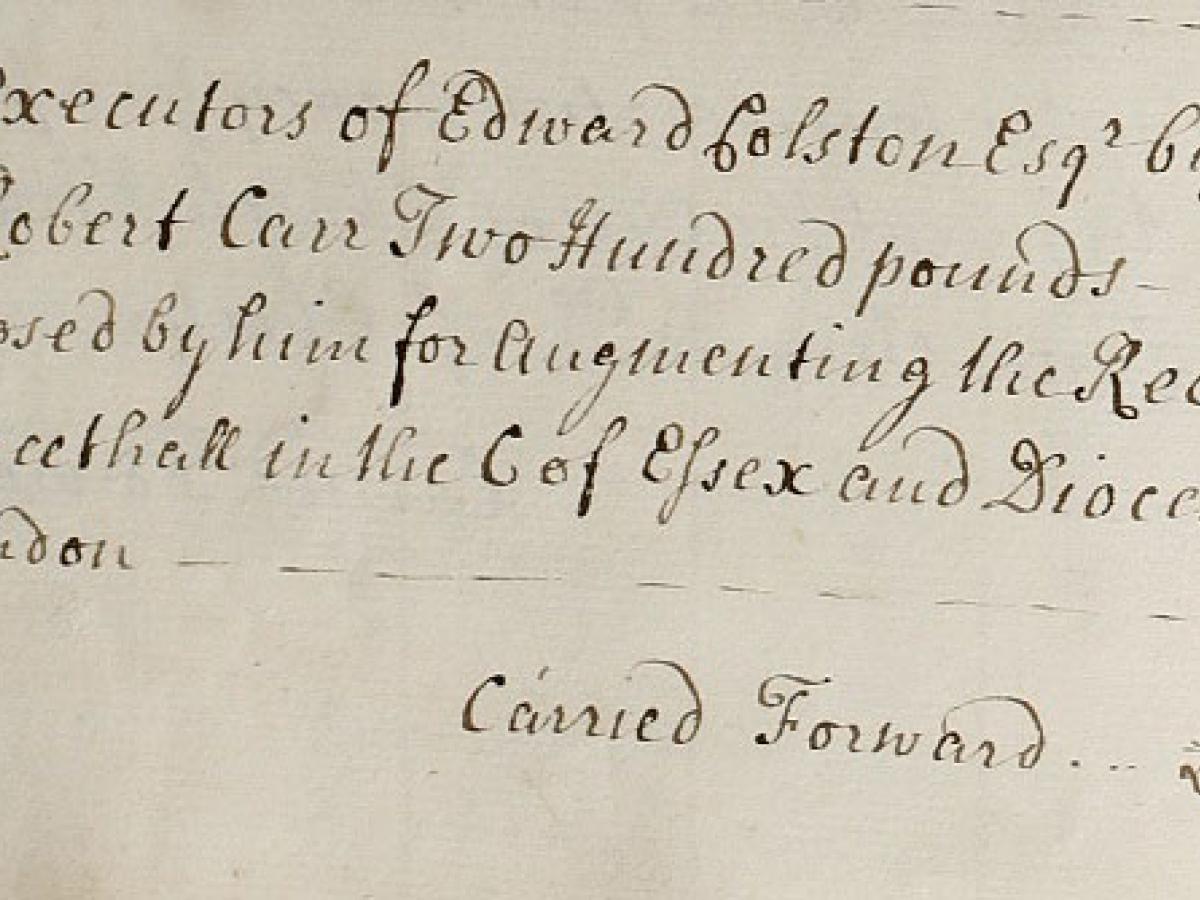 Executors of Edward Colston Esqr by
Robert Carr Two Hundred pounds -
osed by him for Augmenting the Rec
cethall in the C of Essex and Dioce
ndon
Carried Forward ...